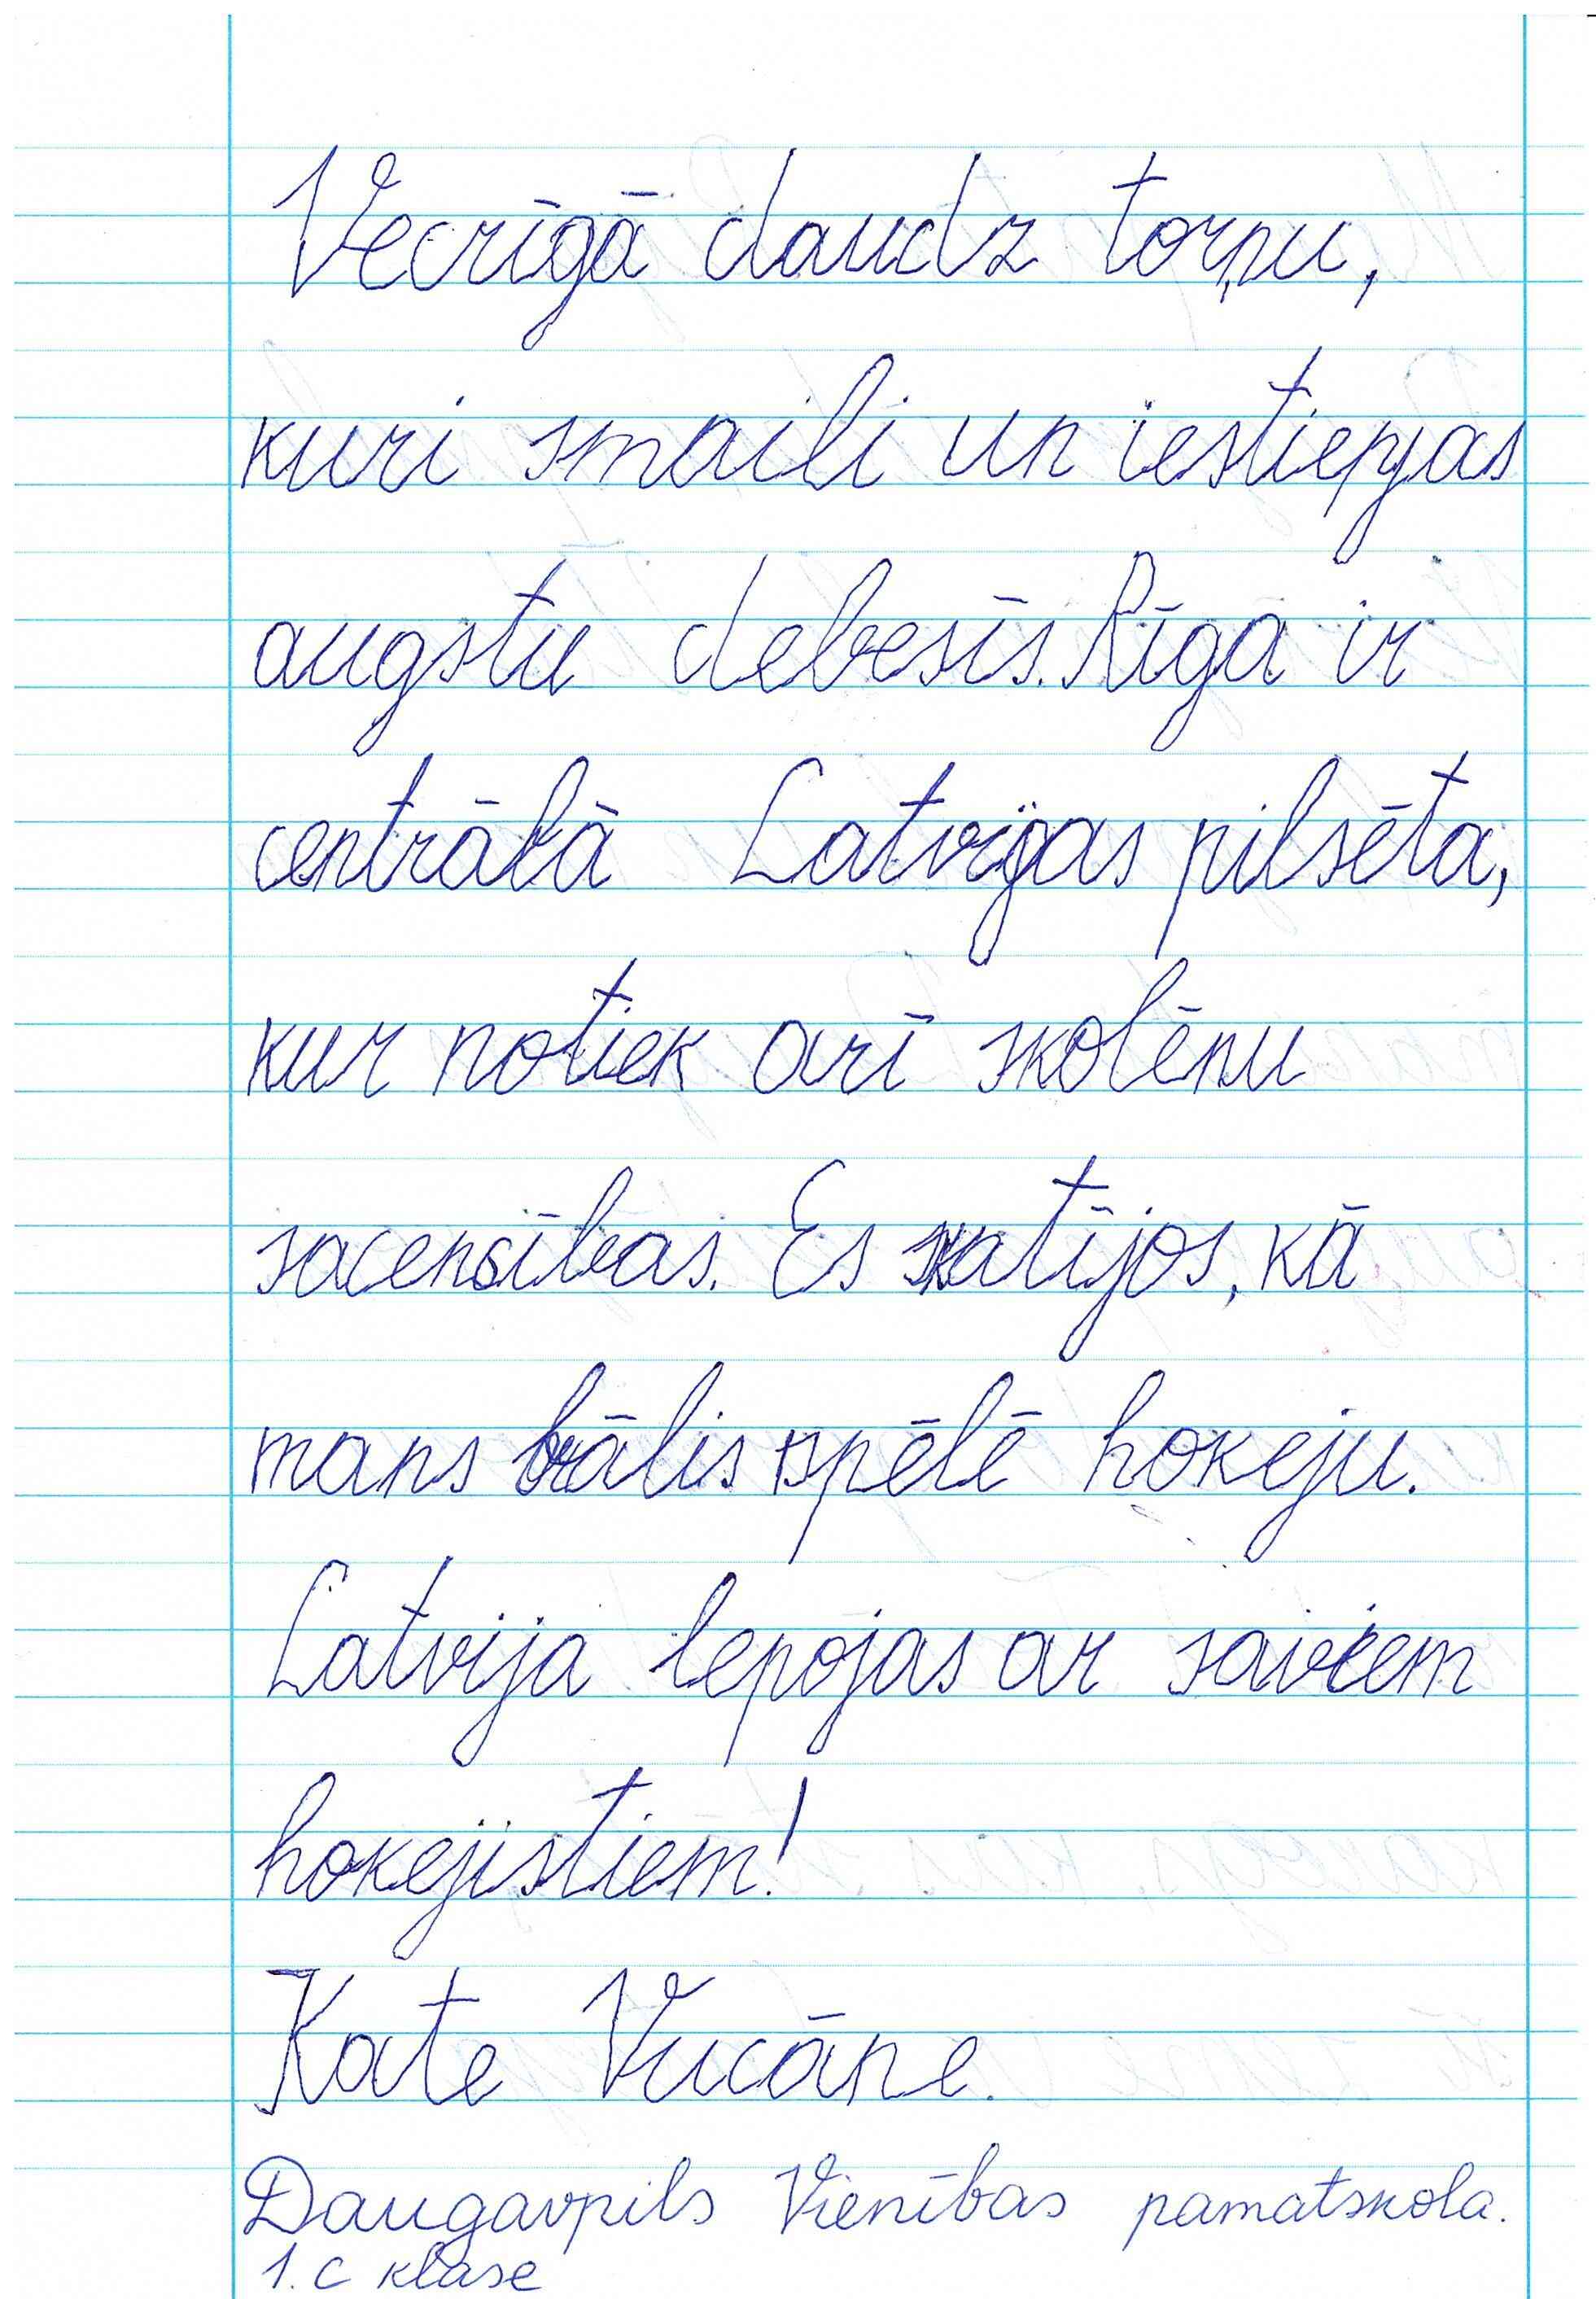 Vecrīgā daudz torņu,
kuri smaili un iestiepjas
augstu debesīs. Rīga ir
centrālā Latvijas pilsēta,
kur notiek arī skolēnu
sacensības. Es skatījos, kā
mans brālis spēlē hokeju.
Latvija lepojas ar saviem
hokejistiem!
Kate Vucāne.
Daugavpils Vienības pamatskola.
1. c klase